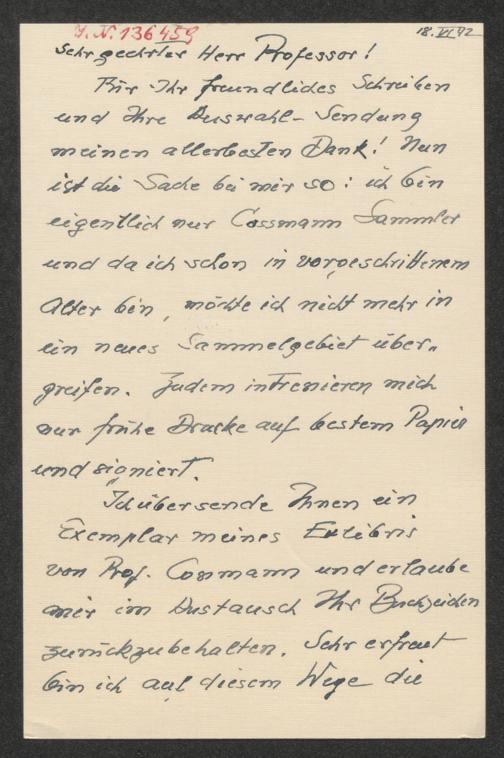 J. N. 136459
18. VI 42
Sehr geehrter Herr Professor!
Für Ihr freundliches Schreiben
und Ihre Auswahl-Sendung
meinen allerbesten Dank! Nun
ist die Sache bei mir so: ich bin
eigentlich nur Cossmann Sammler
und da ich schon in vorgeschrittenem
Alter bin, möchte ich nicht mehr in
ein neues Sammelgebiet über-
greifen. Zudem interessieren mich
nur frühe Drucke auf bestem Papier
und signiert.
Ich übersende Ihnen ein
Exemplar meines Exlibris
von Prof. Cossmann und erlaube
mir im Austausch Ihr Buchzeichen
zurückzubehalten. Sehr erfreut
bin ich auf diesem Wege die